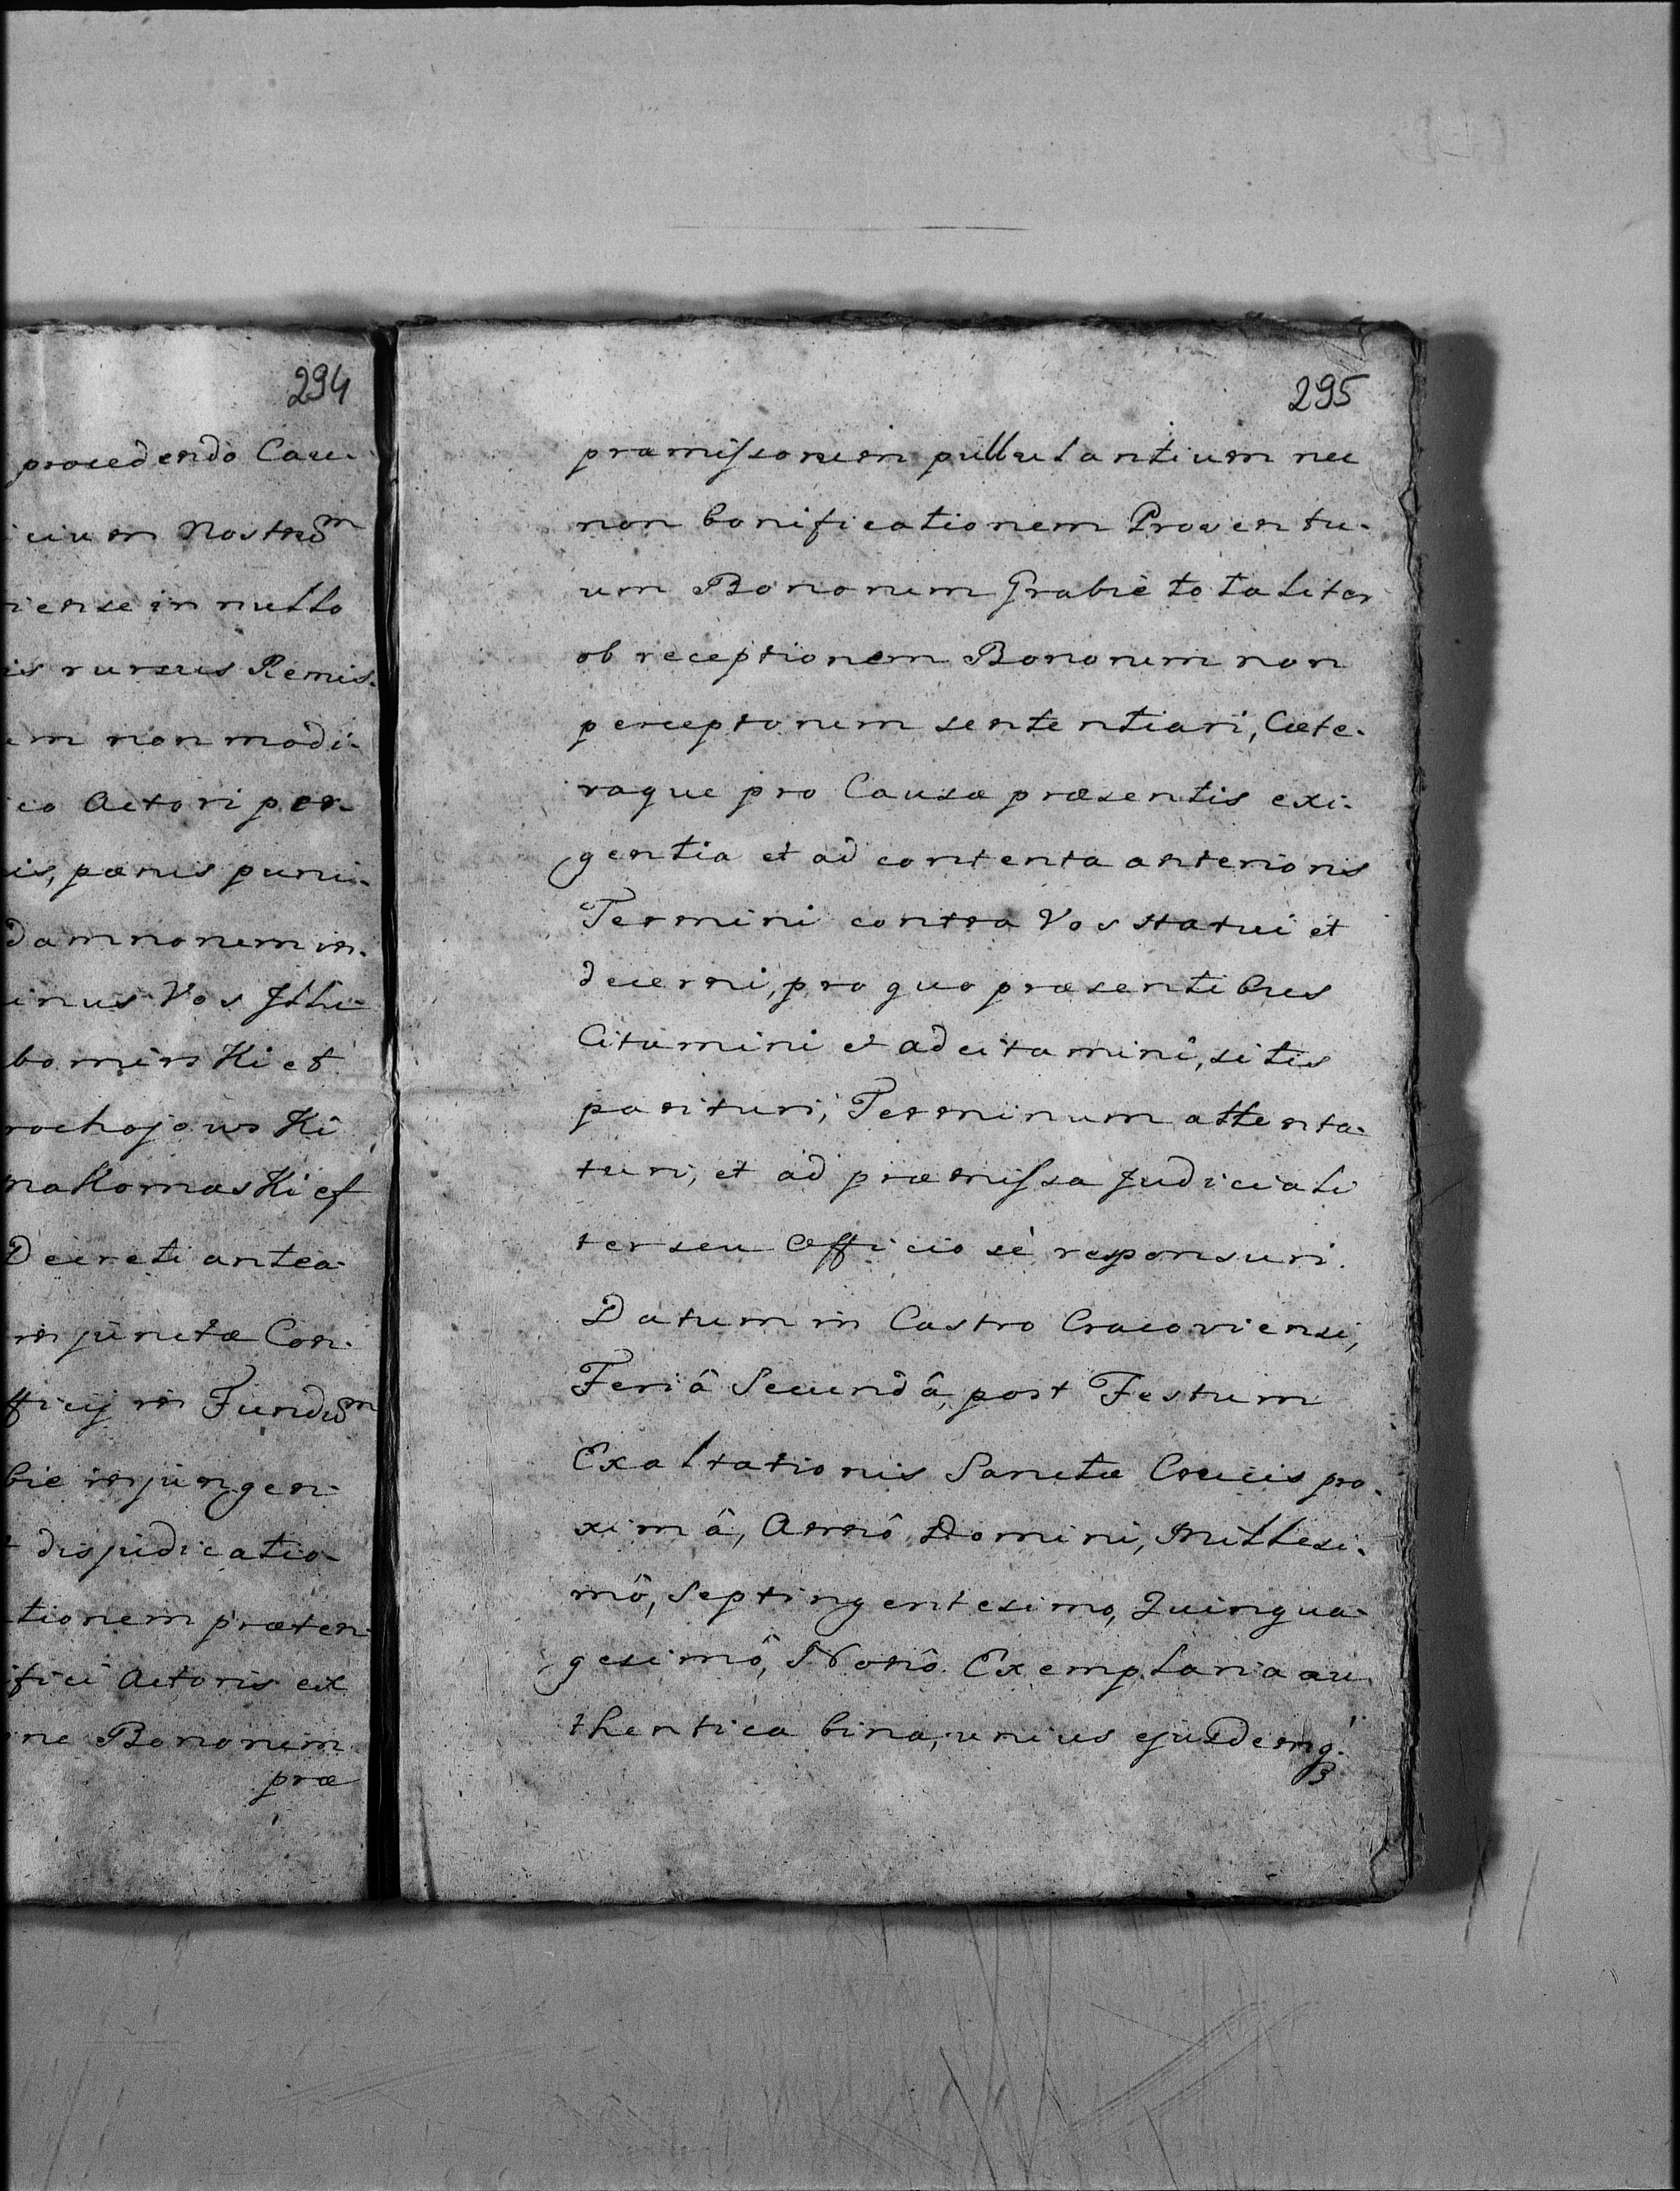 294
procedendo Cau-
cium Nostrũm
iense in nullo
is rursus Remis-
em non modi-
co Actori per-
is, pænis puni-
damnorum in-
inus Vos Jlli-
bomirski et
rochojowski
makomaski et
Decreti antea-
injunctæ Con-
fficij in Fundũm
bie injungen-
t disjudicatio-
tionem præten-
ifici Actoris ex
ne Bonorum
præ
295
præmissorum pullulantium nec
non bonificationem Proventu-
um Bonorum Grabie totaliter
ob receptionem Bonorum non
perceptorum sententiari, Cæte-
raque pro Causæ præsentis exi-
gentia et ad contenta anterioris
Termini contra Vos statui et
decerni, pro quo præsentibus
Citamini et adcitamini, sitis
parituri, Terminum attenta-
turi, et ad præmissa Judiciali
ter seu Officiosè responsuri.
Datum in Castro Cracoviensi,
Feriâ Secundâ, post Festum
Exaltationis Sanctæ Crucis pro-
ximâ, Annô Domini, Millesi-
mô, Septingentesimo, Quinqua-
gesimô, Nonô. Exemplaria au-
thentica bina, unius ejusdemq3